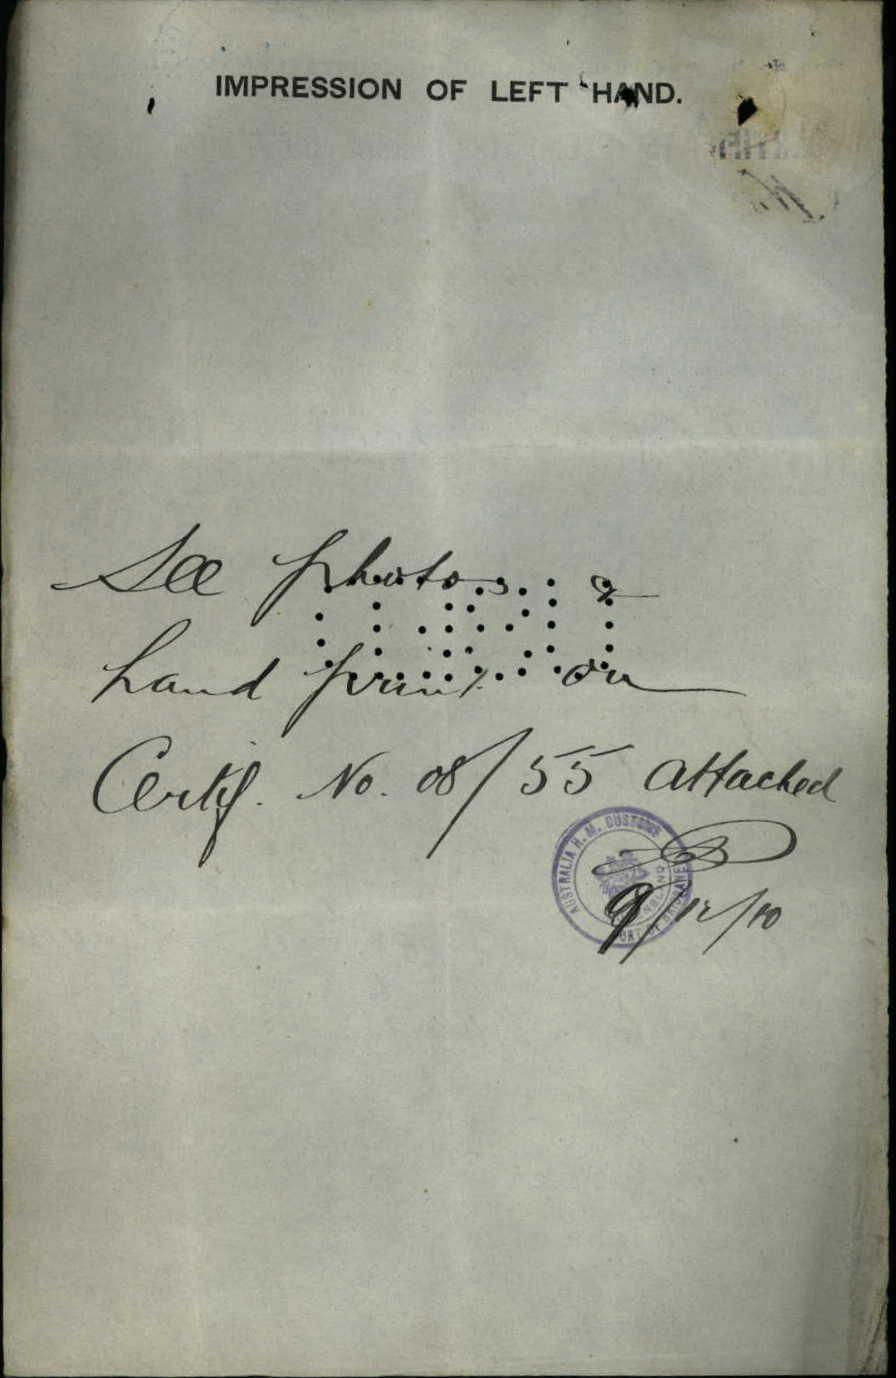 IMPRESSION OF LEFT HAND.
See photos &
hand print on
Certif. No. 08/55 attached
AUSTRALIA H. M. CUSTOMS
PORT OF BRISBANE
QUEENSLAND
9/12/10